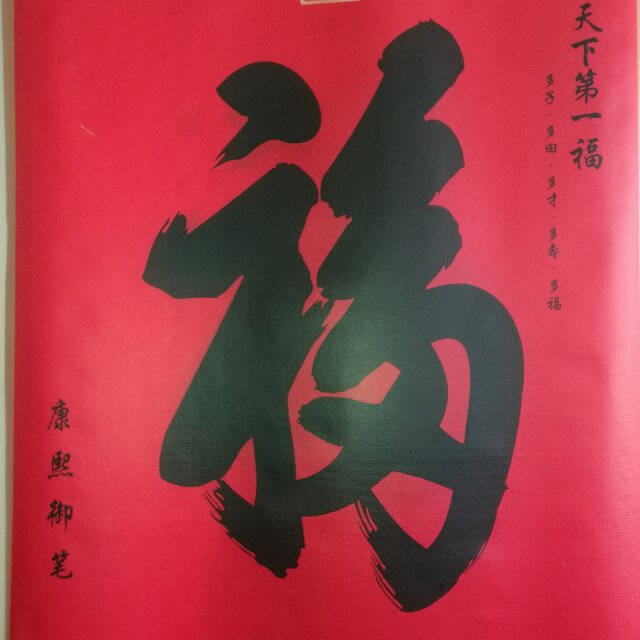 天下第一福
多子·多田·多才·多寿·多福
福
康熙御笔